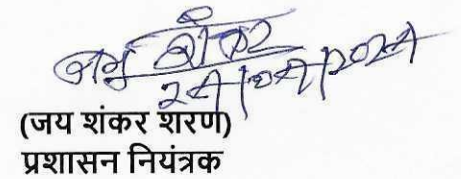 जय शंकर
24/07/2024
(जय शंकर शरण)
प्रशासन नियंत्रक